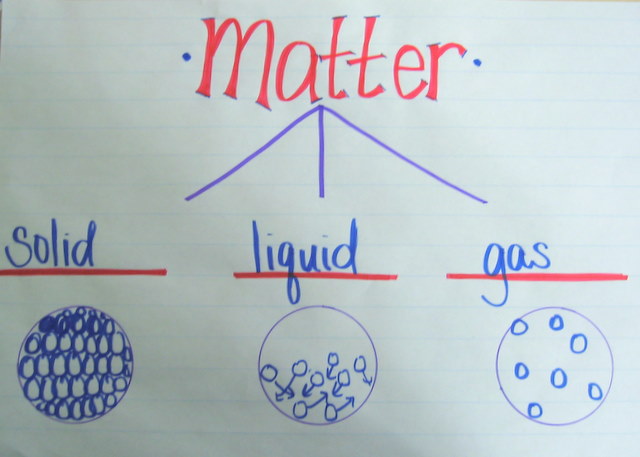 Matter
solid liquid gas